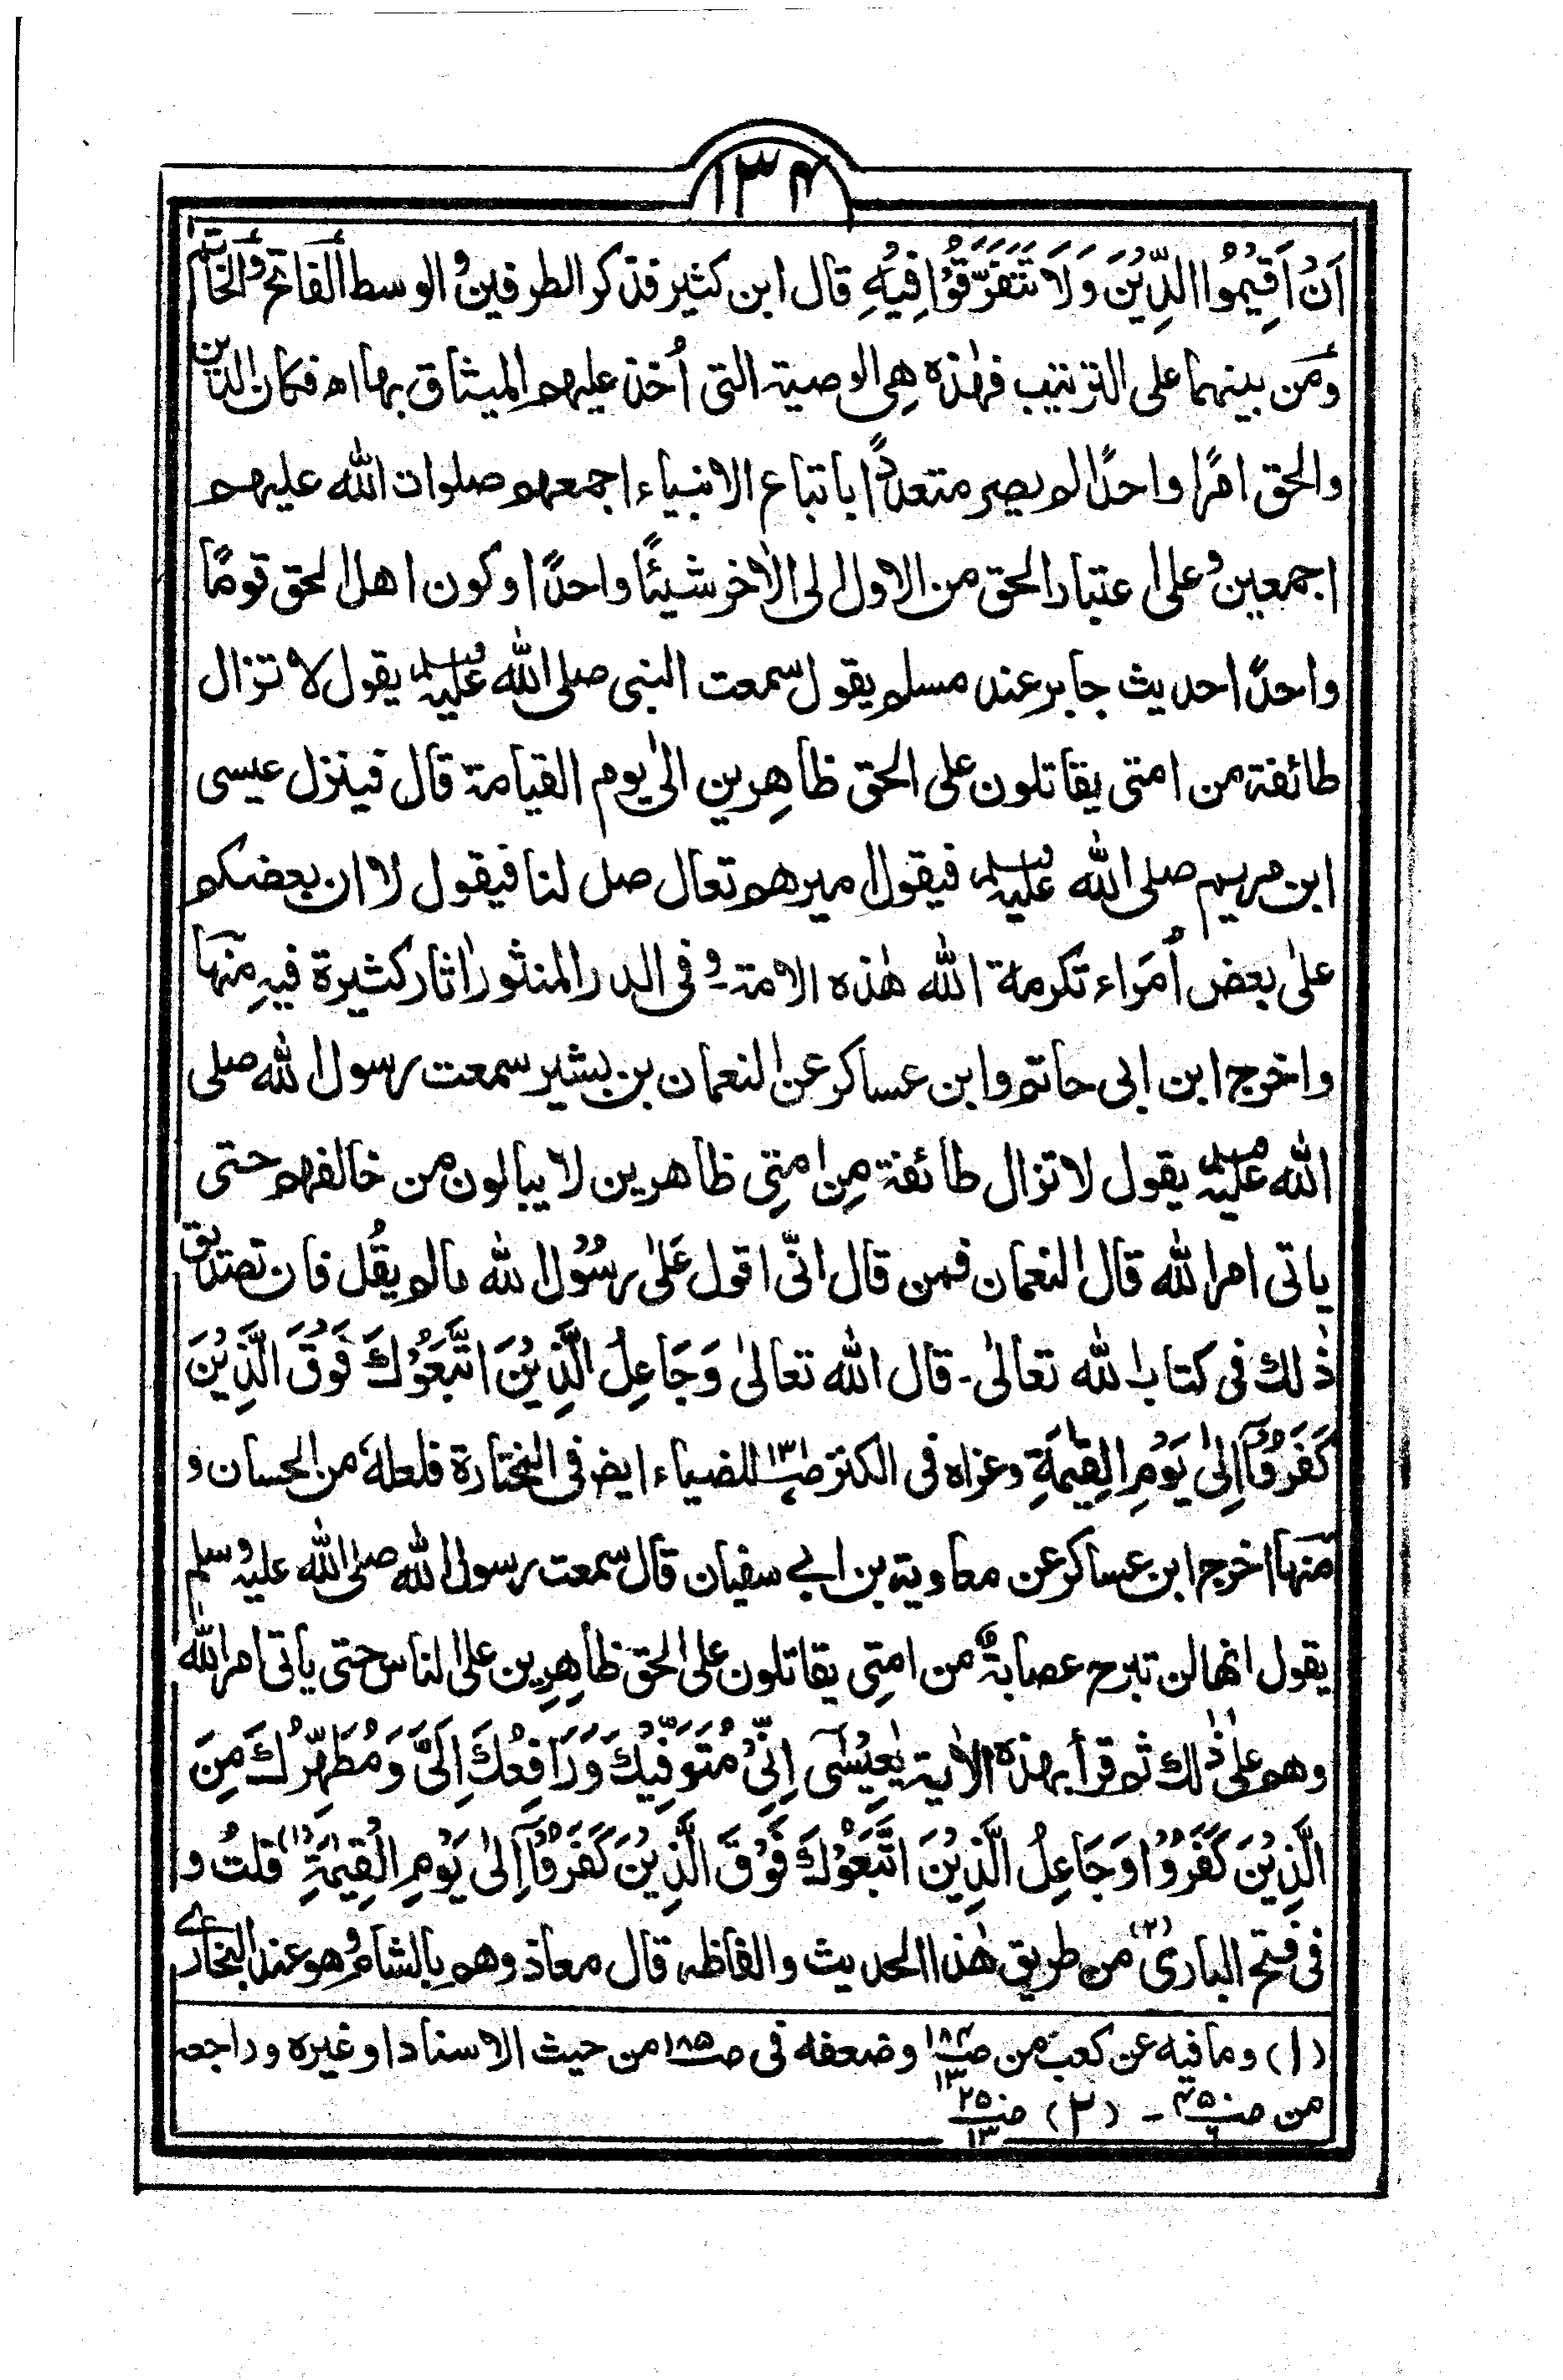 ۱۳۴
اَنْ اَقِيْمُوا الدِّيْنَ وَلَا تَتَفَرَّقُوْا فِيْهِ قال ابن كثير فذكر الطرفين والوسط الفاتح والخاتم
ومن بينهما على الترتيب فهٰذه هي الوصية التي اُخذ عليهم الميثاق بها اه فكان الدين
والحق امرًا واحدًا لم يصر متعددًا باتباع الانبياء اجمعهم صلوات الله عليهم
اجمعين وعلى اعتبار الحق من الاول الى الاٰخر شيئًا واحدًا وكون اهل الحق قومًا
واحدًا حديث جابر عند مسلم يقول سمعت النبي صلى الله عليه وسلم يقول لا تزال
طائفة من امتي يقاتلون على الحق ظاهرين الىٰ يوم القيامة قال فينزل عيسى
ابن مريم صلى الله عليه وسلم فيقول اميرهم تعال صل لنا فيقول لا ان بعضكم
علىٰ بعض اُمَراء تكرمة الله هٰذه الامة ـ وفي الدر المنثور اٰثار كثيرة فيه منها
واخرج ابن ابي حاتم وابن عساكر عن النعمان بن بشير سمعت رسول الله صلى
الله عليه وسلم يقول لا تزال طائفة مِن امتِي ظاهرين لا يبالون من خالفهم حتى
ياتي امر الله قال النعمان فمن قال انّي اقول عَلىٰ رسُوْل الله مالم يقُل فان تصديق
ذٰلك في كتاب الله تعالىٰ ـ قال الله تعالىٰ وَجَاعِلُ الَّذِيْنَ اتَّبَعُوْكَ فَوْقَ الَّذِيْنَ
كَفَرُوْٓا اِلىٰ يَوْمِ الْقِيٰمَةِ وعزاه في الكنز للضياء ايضا في المختارة فلعلهٗ من الحسان و
منها اخرج ابن عساكر عن معاوية بن ابي سفيان قال سمعت رسول الله صلى الله عليه وسلم
يقول انها لن تبرح عصابةٌ من امتِي يقاتلون على الحق ظاهِرِين على الناس حتى ياتي امر الله
وهم علىٰ ذٰلك ثم قرأ بهٰذه الاٰية يٰعِيْسٰٓى اِنِّيْ مُتَوَفِّيْكَ وَرَافِعُكَ اِلَيَّ وَمُطَهِّرُكَ مِنَ
الَّذِيْنَ كَفَرُوْا وَجَاعِلُ الَّذِيْنَ اتَّبَعُوْكَ فَوْقَ الَّذِيْنَ كَفَرُوْٓا اِلىٰ يَوْمِ الْقِيٰمَةِ (۱) قلتُ و
في فتح الباري (۲) من طريق هٰذا الحديث والفاظه قال معاذ وهم بالشام وهو عند البخاري
(۱) وما فيه عن كعب من صـ ۱۸۴/۱۳ وضعفه في صـ ۱۸۵ من حيث الاسناد او غيره وراجعه
من صـ ۴۵/۶ ـ (۲) صـ ۲۵/۱۳